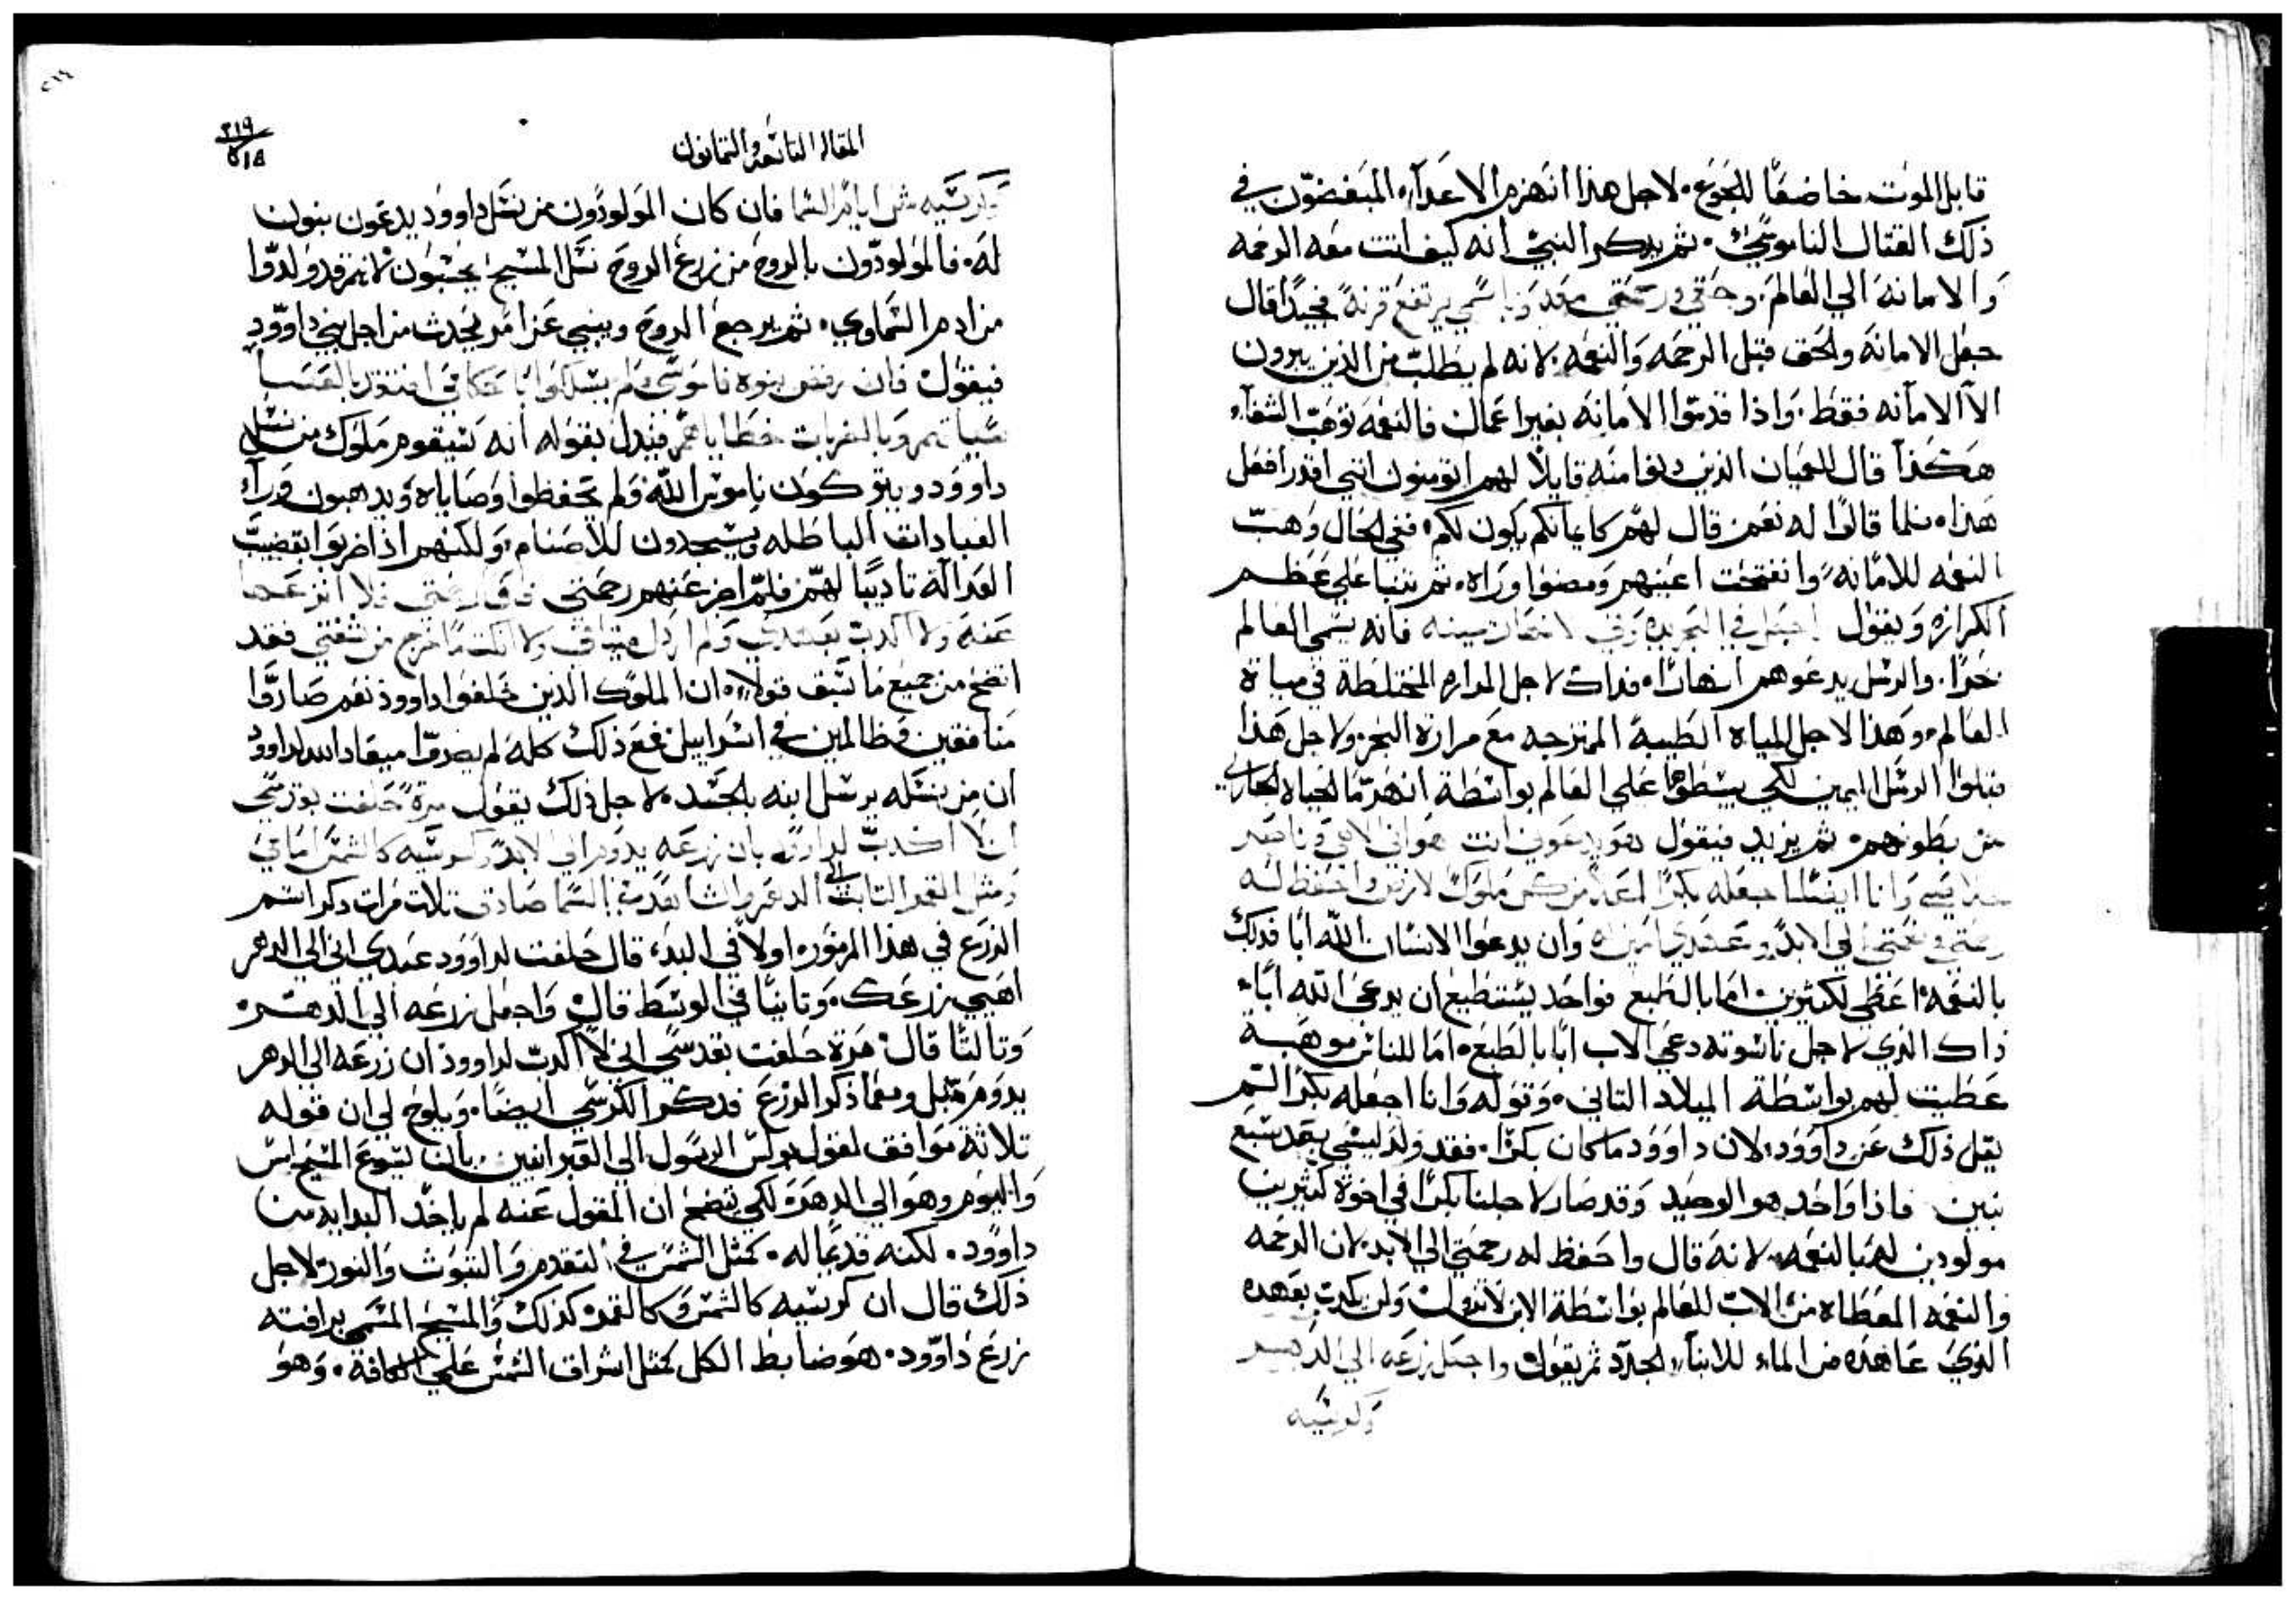 قابل الموت خاضعًا للجوع۰ لاجل هذا انهزم الاعدآء المبغضون في
ذلك القتال الناموسي۰ ثم يذكر النبي انه كيف اتت معه الرحمه
والامانة الي العالم۰ وحقي ورحمتي معه وباسمي يرتفع قرنه فجيدًا قال
جعل الامانة والحق قبل الرحمه والنعمه۰ لانه لم يطلب من الذين يبرون
الا الامانه فقط۰ واذا قدموا الامانة بغير اعمال فالنعمه توهب الشفآء
هكذا قال للعميان الذين دنوا منه قايلًا لهم اتومنون انني اقدر افعل
هذا۰ فلما قالوا له نعم۰ قال لهم كايمانكم يكون لكم۰ ففي الحال وهبت
النعمه للامانه وانفتحت اعينهم ومضوا وراه۰ ثم تنبا علي عظم
الكرازه ويقول اجعل في البحر يده وفي الانهار يمينه فانه يسمي العالم
بحرًا۰ والرسل يدعوهم انهارًا۰ فذاك لاجل المراره المختلطة في مياة
العالم۰ وهذا لاجل المياه الطيبة الممتزجه مع مرارة البحر۰ ولاجل هذا
قبلوا الرسل اليمين لكي يبسطوها علي العالم بواسطة انهر ما الحياه الجاري
من بطونهم۰ ثم يزيد فيقول هو يدعوني انت هو ابي الاهي وناصر
خلاصي وانا ايضًا اجعله بكرًا اعلا من كل ملوك الارض واحفظ له
رحمتي الي الابد وعهدي امينًا له وان يدعوا الانسان الله ابا فذلك
بالنعمة اعطي لكثيرين۰ اما بالطبع فواحد يستطيع ان يدعي الله اباه
ذاك الذي لاجل ناسوته دعي الاب ابًا بالطبع۰ اما للناس موهبه
عطيت لهم بواسطة الميلاد التاني۰ وقوله وانا اجعله بكرًا لم
يقل ذلك عن داوود۰ لان داوود ما كان بكرًا۰ فقد ولد ليسي بعد سبع
بنين فاذًا واحد هو الوحيد وقد صار لاجلنا بكرًا في اخوة كثيرين
مولودين له بالنعمه۰ لانه قال واحفظ له رحمتي الي الابد۰ لان الرحمه
والنعمه المعطاه من الاب للعالم بواسطة الابن لا تزول ولن يكدب بعهده
الذي عاهده من الماء للابنآء الجدد ثم يقول واجعل زرعه الي الدهر
وكرسيه
المقاله التاسعه والتمانون
٢١٩
٥١٥
وكرسيه مثل ايام السما فان كان المولودون من نسل داوود يدعون بنون
له۰ فالمولودون بالروح من زرع الروح نسل المسيح يحسبون لانهم قد ولدوا
من ادم السماوي۰ ثم يرجع الروح وينبي عن امر يحدث من اجل بني داوود
فيقول فان رفض بنوه ناموسي ولم يسلكوا باحكامي افتقد بالعصا
سياتهم وبالضربات خطاياهم فيدل بقوله انه سيقوم ملوك من نسل
داوود ويتركون ناموس الله ولم يحفظوا وصاياه ويدهبون ورآء
العبادات الباطله ويسجدون للاصنام۰ ولكنهم اذا ضربوا بقضيب
العدالة تاديبًا لهم فلم انزع عنهم رحمتي فلا انزعها
عنه ولا اكدب بعهدي ولم ادل ميتاقي ولا انكت ما خرج من شفتي فقد
اتضح من جميع ما سبق قولًا۰ ان الملوك الذين خلفوا داوود نعم صاروا
منافقين وظالمين في اسراييل فمع ذلك كله لم يصرفوا ميعاد الله لداوود
ان من نسله يرسل ابنه بالجسد۰ لاجل ذلك يقول مرة حلفت بقدسي
اني لا اكدب لداوود بان زرعه يدوم الي الابد وكرسيه كالشمس امامي
ومثل القمر التابت الي الدهر والشاهد في السما صادق تلات مرات دكر اسم
الزرع في هذا المزمور۰ اولًا في البدء قال حلفت لداوود عبدي اني الي الدهر
اهيي زرعك۰ وتانيًا في الوسط قال واجعل زرعه الي الدهر۰
وتالتًا قال۰ مرة حلفت بقدسي اني لا اكدب لداوود ان زرعه الي الدهر
يدوم۰ قبل ومعما ذكر الزرع فدكر الكرسي ايضًا۰ ويلوح لي ان قوله
تلاثة موافق لقول بولس الرسول الي العبرانيين۰ بان يسوع المسيح امس
واليوم وهو الي الدهر۰ لكي يتضح ان المقول عنه لم ياخد البدايه من
داوود۰ لكنه قدعًا له۰ كمثل الشمس في التقدم والتبوت والنور۰ لاجل
ذلك قال ان كرسيه كالشمس وكالقمر۰ كذلك والمسيح المسمي برافته
زرع داوود۰ هو ضابط الكل كمثل اشراف الشمس علي الكافة۰ وهو